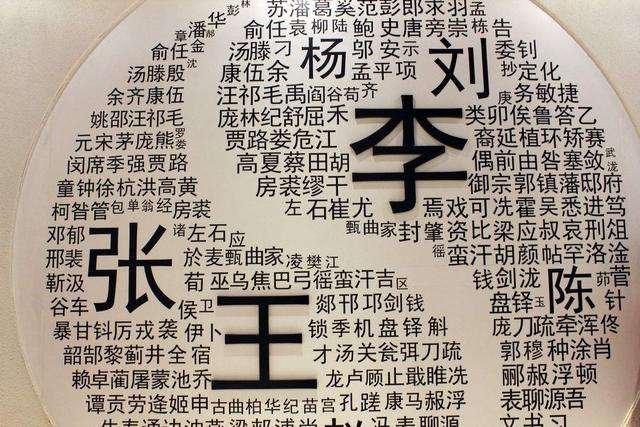 苏潘葛奚范彭郎
彭林
潘 华 郝 俞任袁柳陆 鲍史唐 旁崇栋告
俞 金 汤滕刁 杨 邬安示 刘 委钊
任 沈 康伍余 孟平项 抄定化
汤滕殷 汪祁毛禹阎谷荀齐 庚务敏捷
余齐康伍 庞林纪舒屈禾 李 类卯俟鲁答乙
姚邵汪祁毛 贾路娄危江 裔延植环矫赛
元宋茅庞熊罗娄 高夏蔡田胡 偶前由咎塞敛武泷
闵席季强贾路 房裘缪干 御宗郭镇藩邸府
童钟徐杭洪高黄 左石崔尤 焉戏可冼霍吴悉进笃
柯昝管包单翁经房裘 甄曲家封肇资比梁应叔哀刑淦
邓郁 张 诸左石应 徭蛮汗胡颜帖罕洛沮
邢裴 於麦甄曲家凌樊江 钱剑泷 陈 茆菅
靳汲 荀巫乌焦巴弓徭蛮汗吉区 盘铎玉 针
谷车 侯卫 王 郯邗邛剑钱 庞刀疏牵浑佟
暴甘钭厉戎袭 伊卜 锁季机盘铎斛 郭穆种涂肖
韶郜黎蓟井全宿 才汤关瓮弭刀疏 郦郝浮顿
赖卓蔺屠蒙池乔 龙卢顾止戢睢冼 表聊源吾
谭贡劳逄姬申古曲柏华纪苗宫孔蹉康马郝浮
冯表聊源